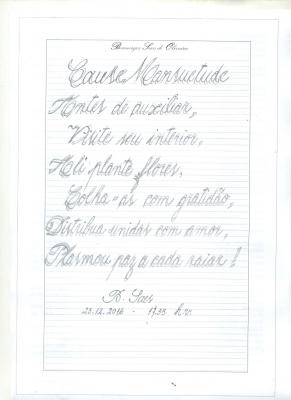 Cause Mansuetude
Antes de auxiliar,
Visite seu interior,
Ali plante flores,
Colha-as com gratidão,
Distribua unidas com amor,
Plasmou paz a cada raiar!
23.12.2016 - 17:35 h.v.